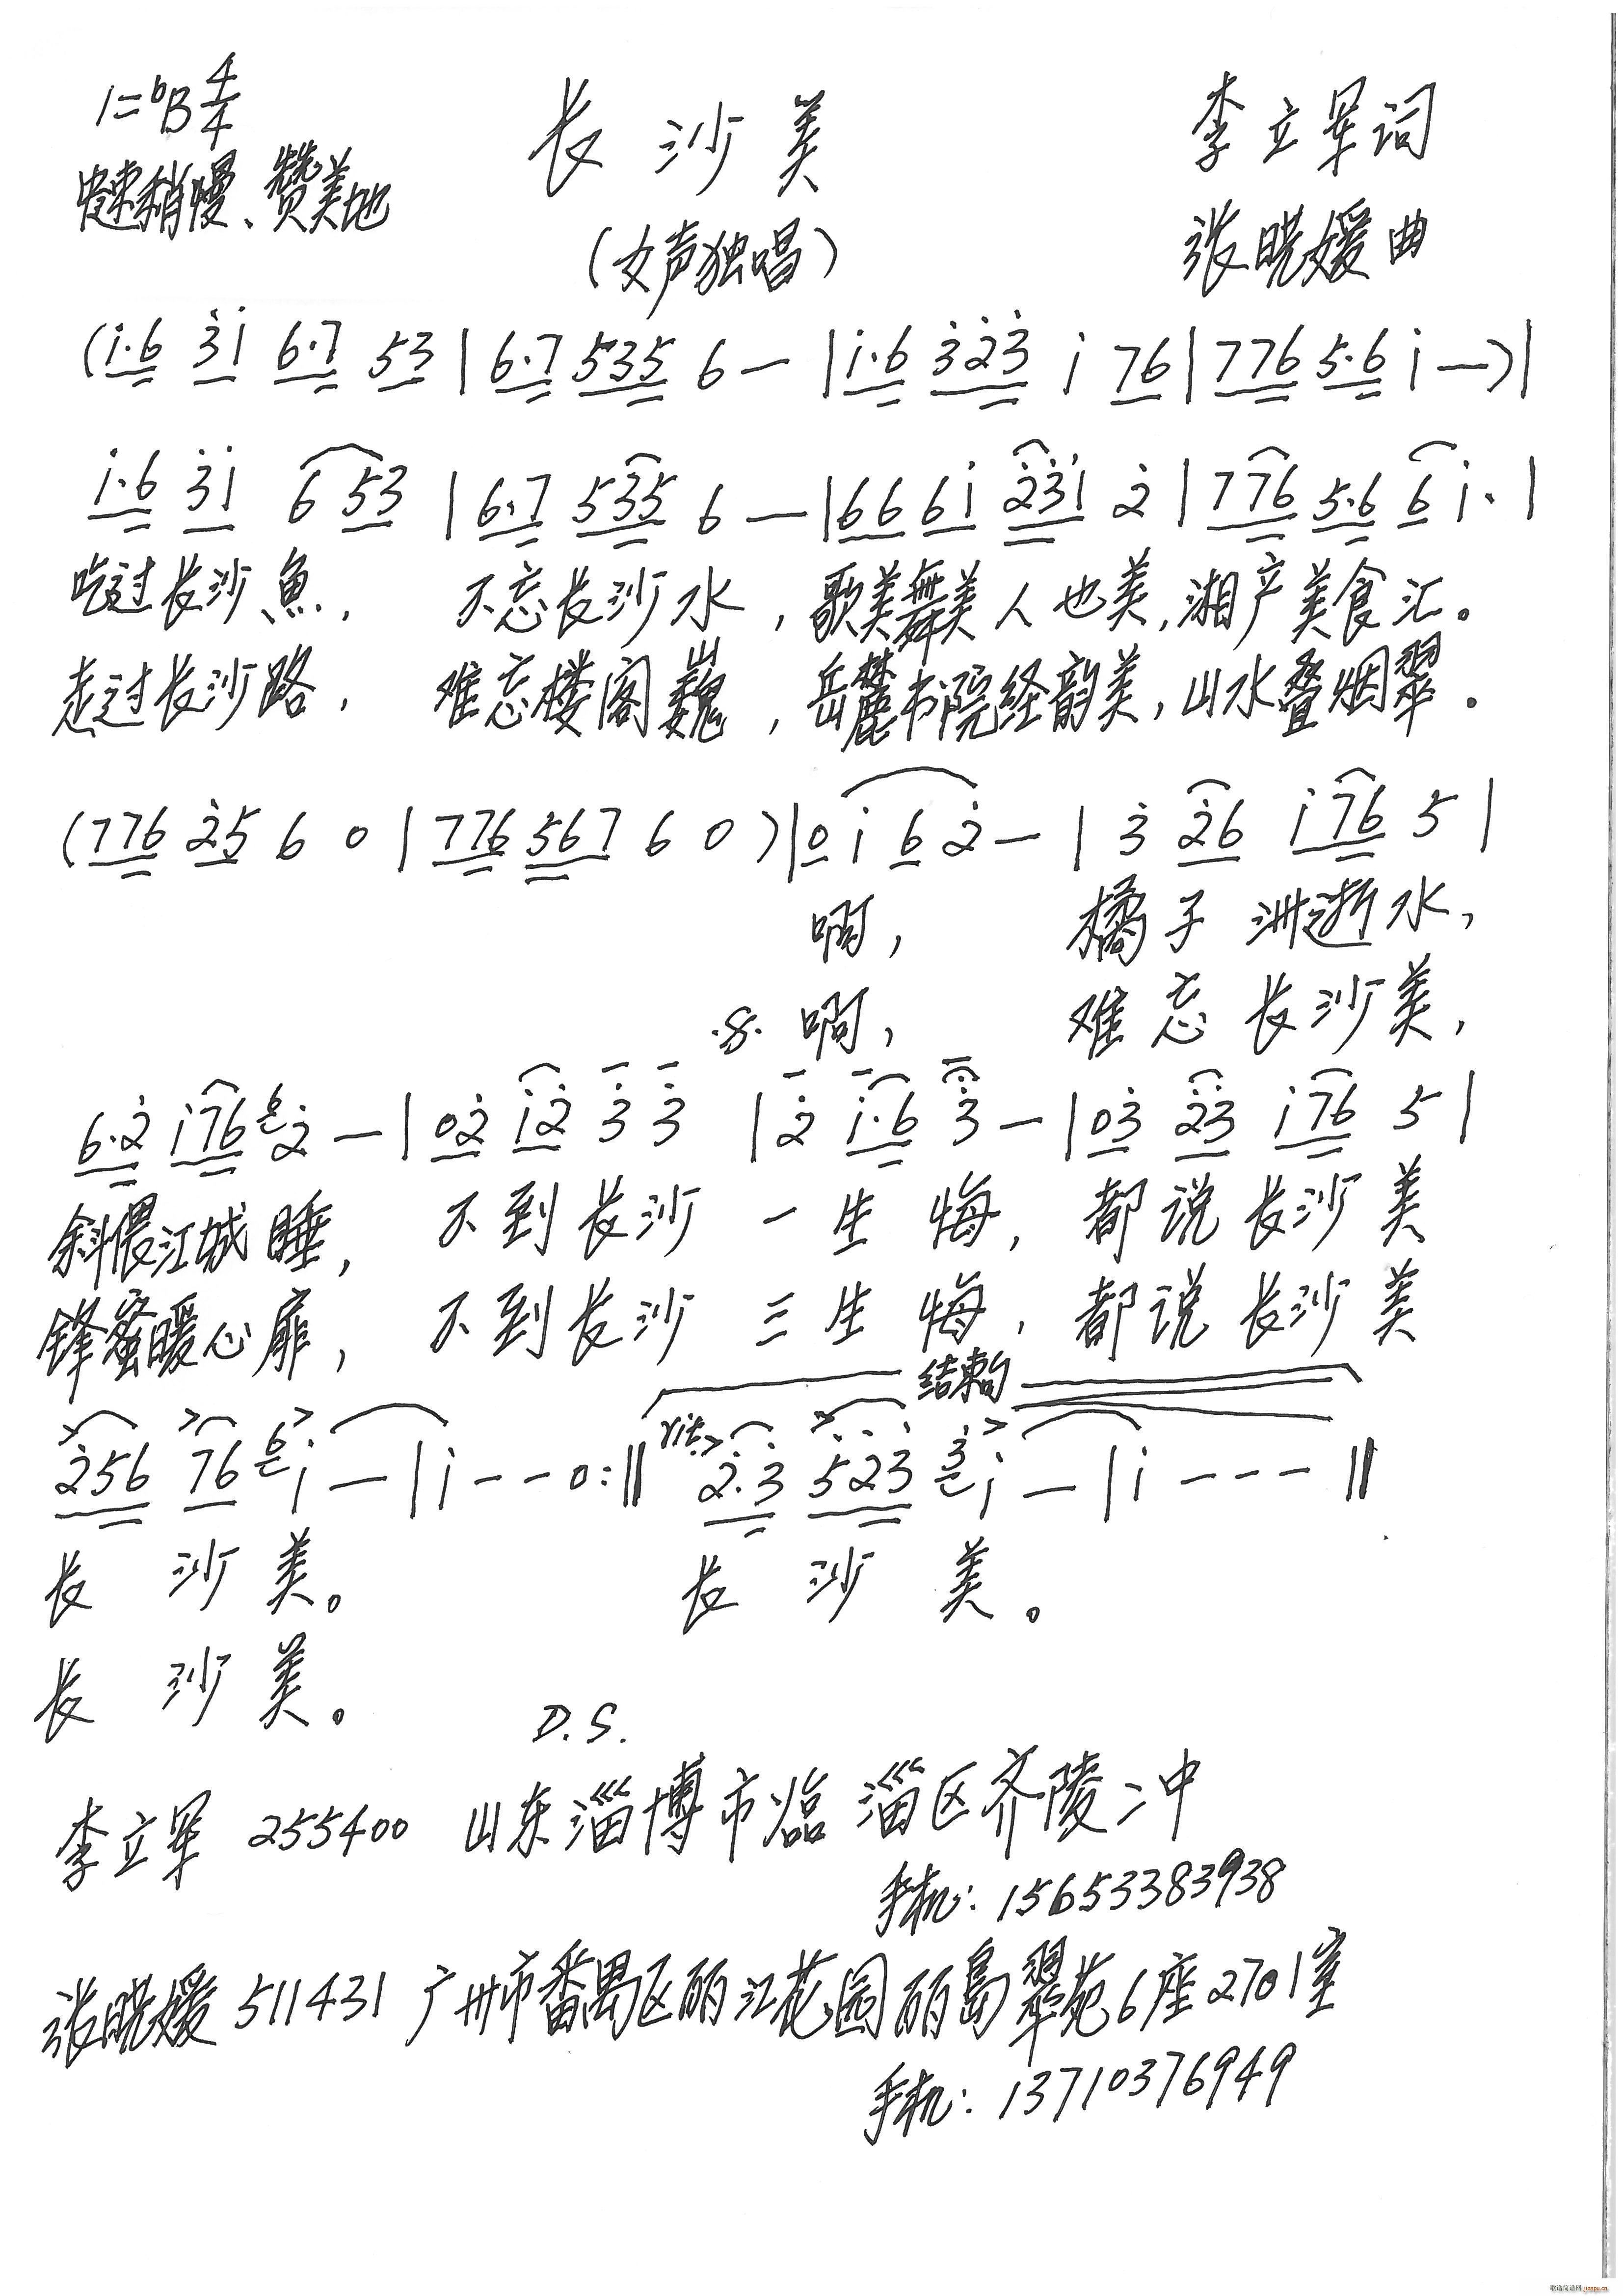 1=♭B 4/4
长沙美
李立军词
中速稍慢、赞美地
(女声独唱)
张晓媛曲
(i·6 3i 6·7 53|6·7 535 6 —|i·6 323 i 76|776 5·6 i —)|
i·6 3i 6 53|6·7 535 6 —|66 6i 23i 2|776 5·6 6 i·|
吃过长沙鱼, 不忘长沙水,歌美舞美人也美,湘产美食汇。
走过长沙路, 难忘楼阁巍,岳麓书院经韵美,山水叠烟翠.
(776 25 6 0|776 567 6 0)|0 i 6 2 —|3 26 i76 5|
啊, 橘子洲逝水,
.S. 啊, 难忘长沙美,
6·2 i76 6 2 —|02 i2 3 3|2 i·6 3 —|03 23 i76 5|
斜偎江城睡, 不到长沙一生悔, 都说长沙美
锋蜜暖心扉, 不到长沙三生悔, 都说长沙美
结束句
256 76 6 i —|i - - 0:‖ rit. 2·3 523 3 i —|i - - -‖
长沙美。 长沙美。
长沙美。
D.S.
李立军 255400 山东淄博市临淄区齐陵二中
手机:15653383938
张晓媛 511431 广州市番禺区丽江花园丽岛翠苑6座2701室
手机:13710376949
歌谱简谱网 jianpu.cn